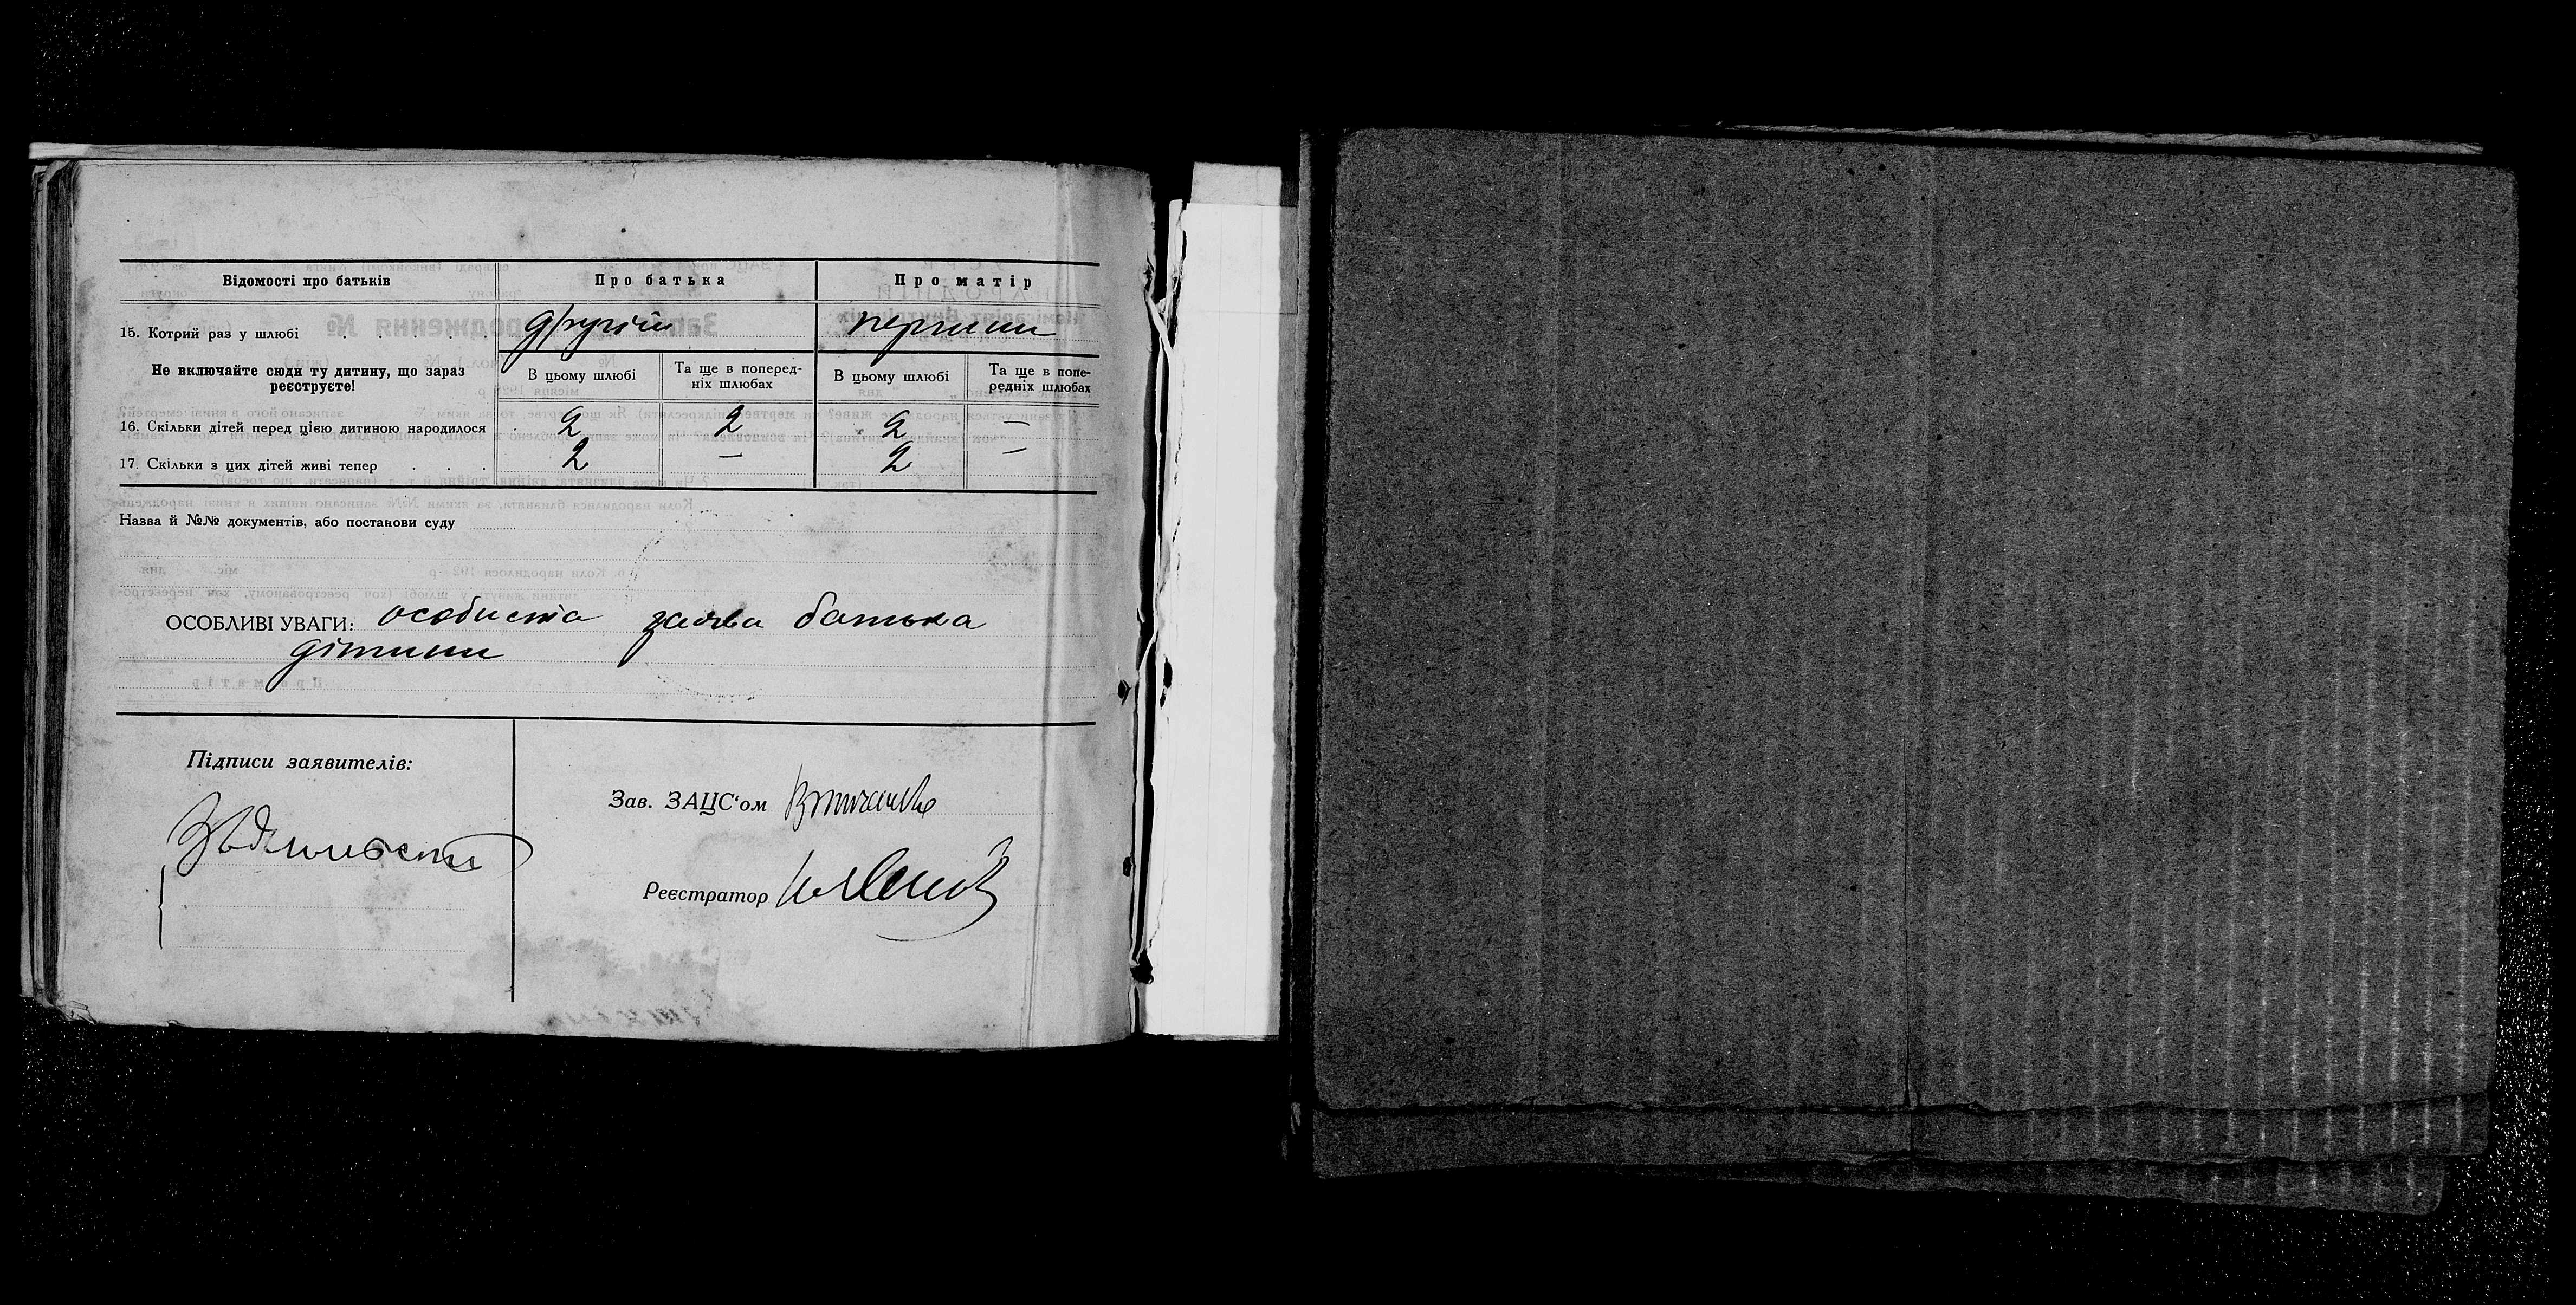 Відомості про батьків Про батька Про матір
15. Котрий раз у шлюбі . . . . . . другий перший
Не включайте сюди ту дитину, що зараз реєструєте!
В цьому шлюбі Та ще в попередніх шлюбах В цьому шлюбі Та ще в попередніх шлюбах
16. Скільки дітей перед цією дитиною народилося 2 2 2 —
17. Скільки з цих дітей живі тепер . . . 2 — 2 —
Назва й №№ документів, або постанови суду
ОСОБЛИВІ УВАГИ: особиста заява батька
дітини
Підписи заявителів:
Зав. ЗАЦС‘ом
Реєстратор